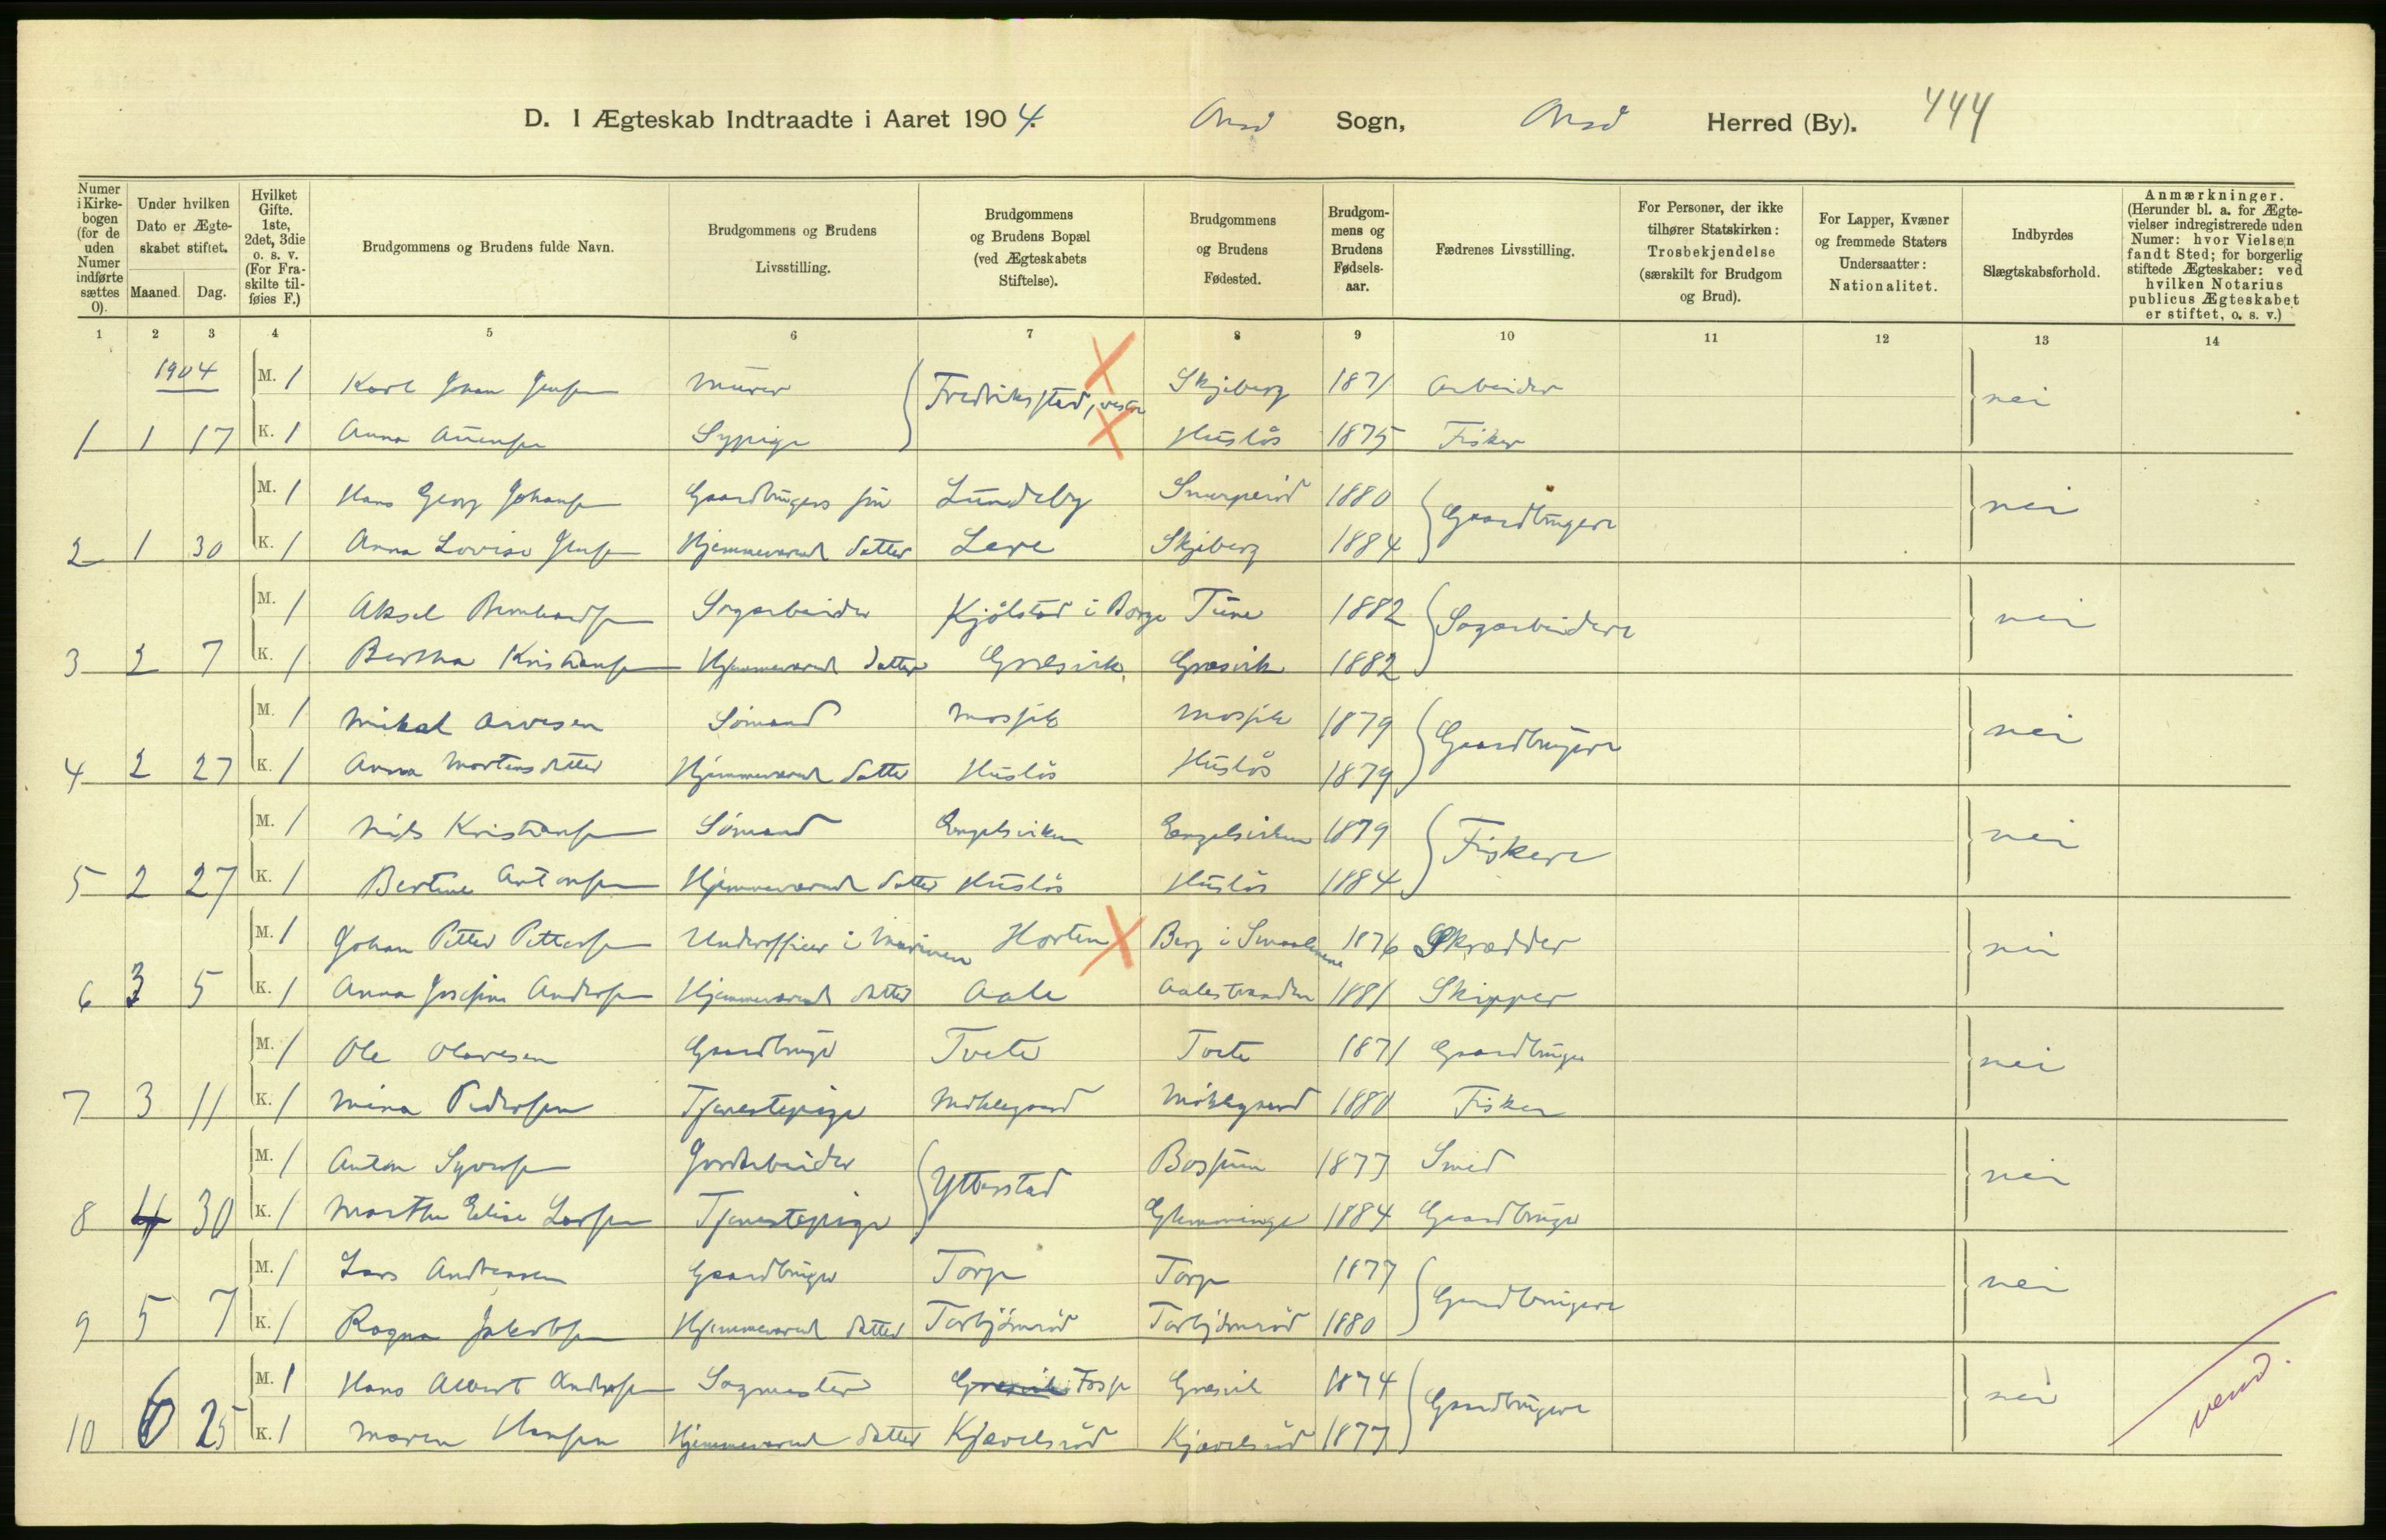 D. I Ægteskab Indtraadte i Aaret 1904. Onsö Sogn, Onsö Herred (By). 444
Numer i Kirkebogen (for de uden Numer indførte sættes 0).
Under hvilken Dato er Ægteskabet stiftet.
Maaned. Dag.
Hvilket Gifte. 1ste, 2det, 3die o. s. v. (For Fraskilte tilføies F.)
Brudgommens og Brudens fulde Navn.
Brudgommens og Brudens Livsstilling.
Brudgommens og Brudens Bopæl (ved Ægteskabets Stiftelse).
Brudgommens og Brudens Fødested.
Brudgommens og Brudens Fødselsaar.
Fædrenes Livsstilling.
For Personer, der ikke tilhører Statskirken: Trosbekjendelse (særskilt for Brudgom og Brud).
For Lapper, Kvæner og fremmede Staters Undersaatter: Nationalitet.
Indbyrdes Slægtskabsforhold.
Anmærkninger. (Herunder bl. a. for Ægtevielser indregistrerede uden Numer: hvor Vielsen fandt Sted; for borgerlig stiftede Ægteskaber: ved hvilken Notarius publicus Ægteskabet er stiftet, o. s. v.)
1 2 3 4 5 6 7 8 9 10 11 12 13 14
1904 M. 1 Karl Johan Jensen Murer Fredriksstad, vestre Skjeberg 1871 Arbeider nei
1 1 17 K. 1 Anna Sypige Huslös 1875 Fisker
M. 1 Hans Georg Johansen Gaardbrugers sön Lundeby 1880 Gaardbrugere nei
2 1 30 K. 1 Anna Lovise Jensen Hjemmeværende datter Lere Skjeberg 1884
M. 1 Aksel Bernhardsen Sagarbeider Kjölstad i Borge Tune 1882 Sagarbeidere nei
3 2 7 K. 1 Bertha Kristiansen Hjemmeværende datter Gresvik Græsvik 1882
M. 1 Mikal Arvesen Sömand Mosjik Mosjik 1879 Gaardbrugere nei
4 2 27 K. 1 Anna Mortensdatter Hjemmeværende datter Huslös Huslös 1879
M. 1 Nils Kristiansen Sömand Engelsviken Engelsviken 1879 Fiskere nei
5 2 27 K. 1 Bertine Antonsen Hjemmeværende datter Huslös Huslös 1884
M. 1 Johan Petter Pettersen Underofficer i Marinen Horten Berg i Smaalenene 1876 Skrædder nei
6 3 5 K. 1 Anna Josefine Andersen Hjemmeværende datter Aale Aalestranden 1881 Skipper
M. 1 Ole Olavesen Gaardbruger Tvete Tvete 1871 Gaardbruger nei
7 3 11 K. 1 Mina Pedersen Tjenestepige Möklegaard Möklegaard 1880 Fisker
M. 1 Anton Syversen Jordarbeider Ytterstad Bossum 1877 Smed nei
8 4 30 K. 1 Marthe Elise Larsen Tjenestepige Glemminge 1884 Gaardbruger
M. 1 Lars Andreasen Gaardbruger Torp Torp 1877 Gaardbrugere nei
9 5 7 K. 1 Ragna Jakobsen Hjemmeværende datter Torbjörnröd Torbjörnröd 1880
M. 1 Hans Albert Andersen Sagmester Gresvik Torp Gresvik 1874 Gaardbrugere nei
10 6 25 K. 1 Maren Hansen Hjemmeværende datter Kjærelsröd Kjærelsröd 1877
vend.